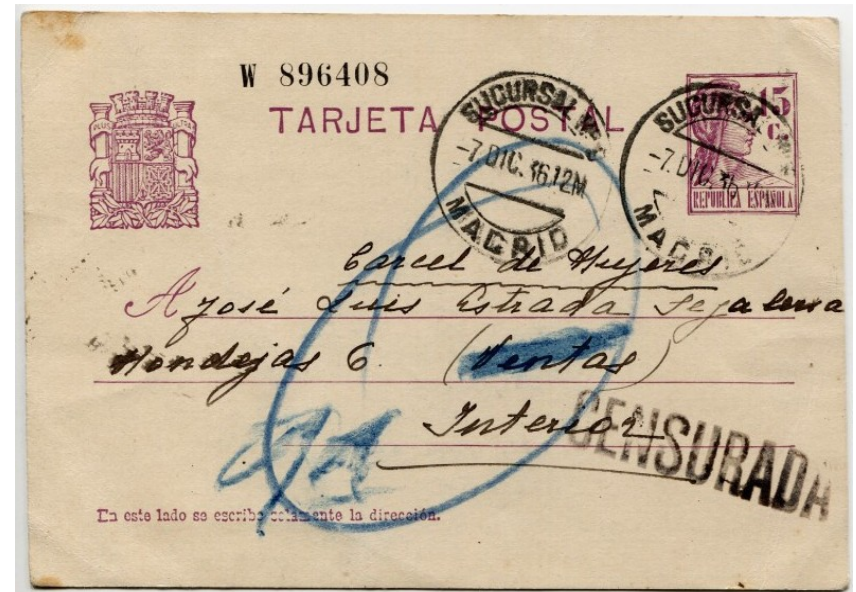 W 896408
TARJETA POSTAL
PLUS ULTRA
15 C.
REPUBLICA ESPAÑOLA
SUCURSAL
-7.DIC.36.12M
MADRID
SUCURSAL
-7.DIC.36
MADRID
Carcel de Mujeres
A José Luis Estrada Segalerva
6. (Ventas)
Interior
CENSURADA
En este lado se escribe solamente la dirección.